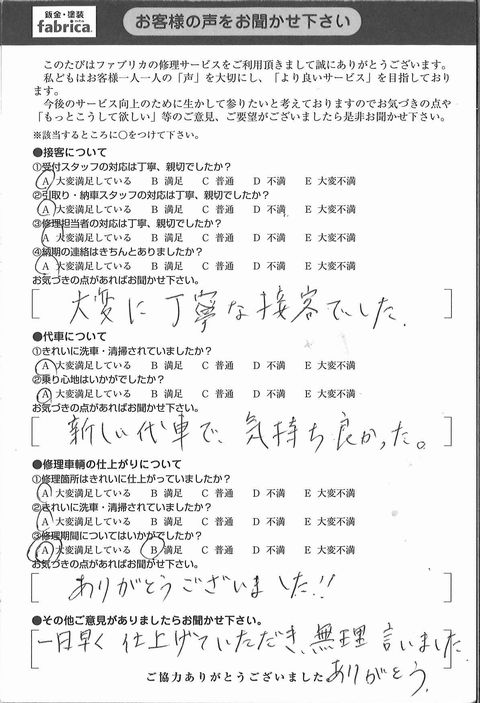 鈑金・塗装
fabrica.
お客様の声をお聞かせ下さい
このたびはファブリカの修理サービスをご利用頂きまして誠にありがとうございます。
私どもはお客様一人一人の「声」を大切にし、「より良いサービス」を目指しており
ます。
今後のサービス向上のために生かして参りたいと考えておりますのでお気づきの点や
「もっとこうして欲しい」等のご意見、ご要望がございましたら是非お聞かせ下さい。
※該当するところに○をつけて下さい。
●接客について
①受付スタッフの対応は丁寧、親切でしたか？
A 大変満足している B 満足 C 普通 D 不満 E 大変不満
②引取り・納車スタッフの対応は丁寧、親切でしたか？
A 大変満足している B 満足 C 普通 D 不満 E 大変不満
③修理担当者の対応は丁寧、親切でしたか？
A 大変満足している B 満足 C 普通 D 不満 E 大変不満
④納期の連絡はきちんとありましたか？
A 大変満足している B 満足 C 普通 D 不満 E 大変不満
お気づきの点があればお聞かせ下さい。
大変に丁寧な接客でした.
●代車について
①きれいに洗車・清掃されていましたか？
A 大変満足している B 満足 C 普通 D 不満 E 大変不満
②乗り心地はいかがでしたか？
A 大変満足している B 満足 C 普通 D 不満 E 大変不満
お気づきの点があればお聞かせ下さい。
新しい代車で、気持ち良かった。
●修理車輌の仕上がりについて
①修理箇所はきれいに仕上がっていましたか？
A 大変満足している B 満足 C 普通 D 不満 E 大変不満
②きれいに洗車・清掃されていましたか？
A 大変満足している B 満足 C 普通 D 不満 E 大変不満
③修理期間についてはいかがでしたか？
A 大変満足している B 満足 C 普通 D 不満 E 大変不満
お気づきの点があればお聞かせ下さい。
ありがとうございました!!
●その他ご意見がありましたらお聞かせ下さい。
一日早く仕上げていただき、無理言いました
ありがとう.
ご協力ありがとうございました